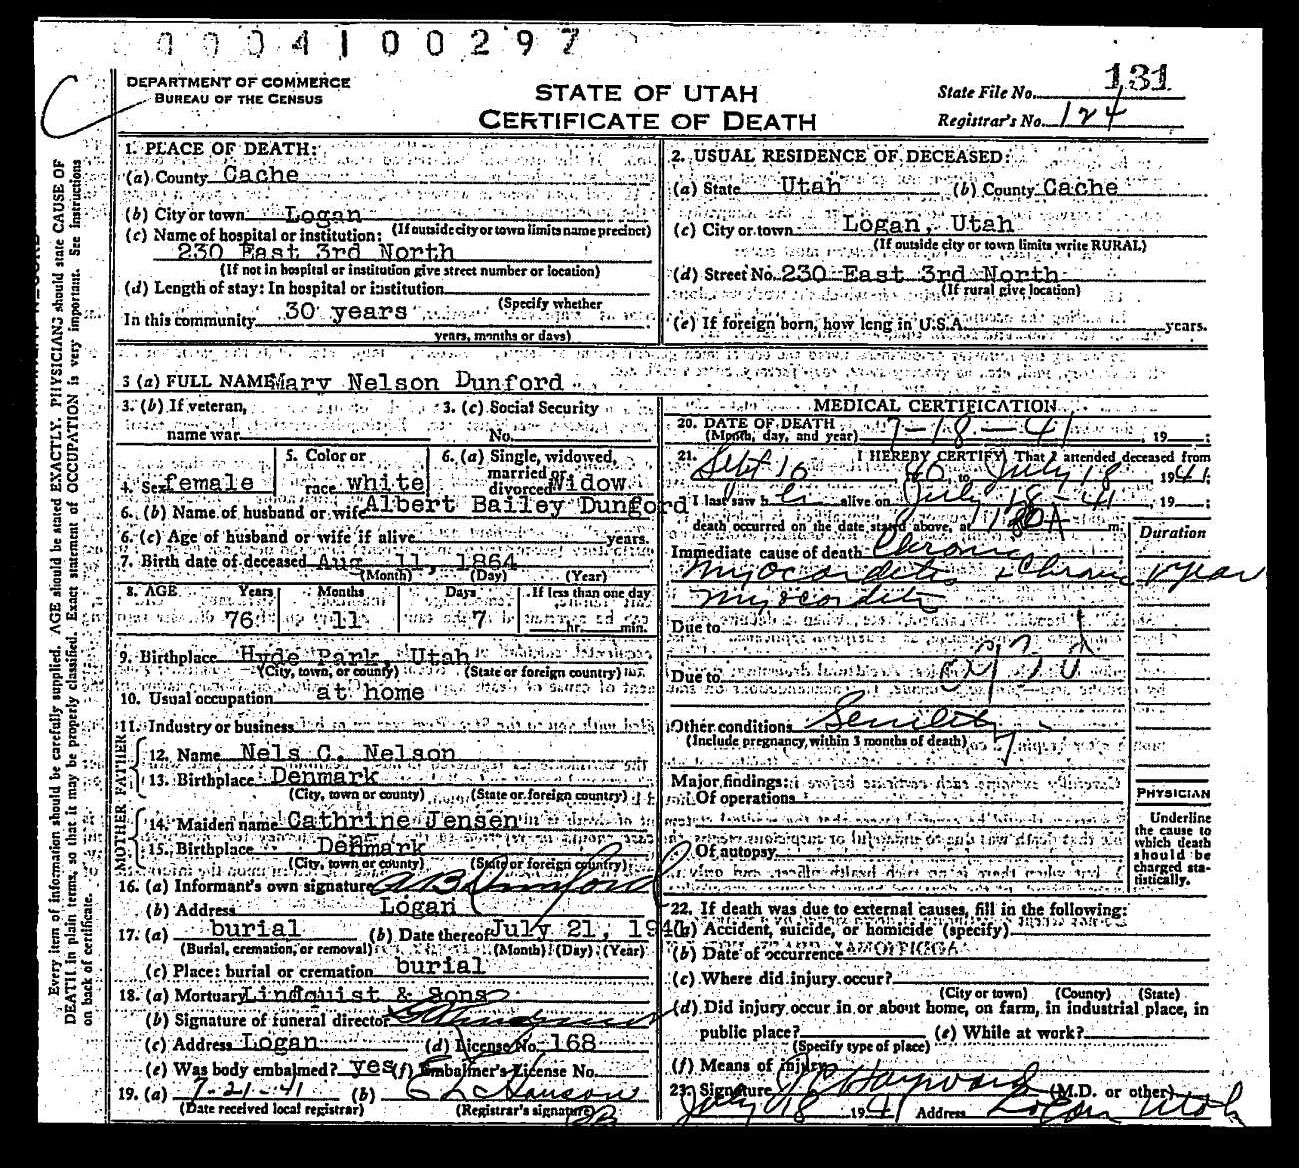 0004100297
DEPARTMENT OF COMMERCE
BUREAU OF THE CENSUS
STATE OF UTAH
CERTIFICATE OF DEATH
State File No. 131
Registrar's No. 124
Every item of information should be carefully supplied. AGE should be stated EXACTLY. PHYSICIANS should state CAUSE OF
DEATH in plain terms, so that it may be properly classified. Exact statement of OCCUPATION is very important. See instructions
on back of certificate.
1. PLACE OF DEATH:
(a) County Cache
(b) City or town Logan
(If outside city or town limits name precinct)
(c) Name of hospital or institution:
230 East 3rd North
(If not in hospital or institution give street number or location)
(d) Length of stay: In hospital or institution
(Specify whether
In this community 30 years
years, months or days)
2. USUAL RESIDENCE OF DECEASED:
(a) State Utah (b) County Cache
(c) City or town Logan, Utah
(If outside city or town limits write RURAL)
(d) Street No. 230 East 3rd North
(If rural give location)
(e) If foreign born, how long in U.S.A. years.
3 (a) FULL NAME Mary Nelson Dunford
3. (b) If veteran, 3. (c) Social Security
name war No.
4. Sex female 5. Color or race white 6. (a) Single, widowed, married or divorced Widow
6. (b) Name of husband or wife Albert Bailey Dunford
6. (c) Age of husband or wife if alive years.
7. Birth date of deceased Aug. 11, 1864
(Month) (Day) (Year)
8. AGE Years Months Days If less than one day
76 11 7 hr. min.
9. Birthplace Hyde Park, Utah
(City, town, or county) (State or foreign country)
10. Usual occupation at home
11. Industry or business
FATHER
12. Name Nels C. Nelson
13. Birthplace Denmark
(City, town or county) (State or foreign country)
MOTHER
14. Maiden name Cathrine Jensen
15. Birthplace Denmark
(City, town or county) (State or foreign country)
16. (a) Informant's own signature A B Dunford
(b) Address Logan
17. (a) burial (b) Date thereof July 21, 194
(Burial, cremation, or removal) (Month) (Day) (Year)
(c) Place: burial or cremation burial
18. (a) Mortuary Lindquist & Sons
(b) Signature of funeral director
(c) Address Logan (d) License No. 168
(e) Was body embalmed? yes (f) Embalmer's License No.
19. (a) 7-21-41 (b)
(Date received local registrar) (Registrar's signature)
MEDICAL CERTIFICATION
20. DATE OF DEATH 7-18-41, 19 ;
(Month, day, and year)
21. I HEREBY CERTIFY, That I attended deceased from
Sept 10 40 to July 18 1941;
I last saw h er alive on July 18-41, 19 ;
death occurred on the date stated above, at m.
Duration
Immediate cause of death Chronic
Myocarditis + Chronic 1 year
Myocarditis
Due to
Due to
Other conditions Senility
(Include pregnancy within 3 months of death)
Major findings:
Of operations
Of autopsy
PHYSICIAN
Underline
the cause to
which death
should be
charged sta-
tistically.
22. If death was due to external causes, fill in the following:
(a) Accident, suicide, or homicide (specify)
(b) Date of occurrence
(c) Where did injury occur?
(City or town) (County) (State)
(d) Did injury occur in or about home, on farm, in industrial place, in
public place? (e) While at work?
(Specify type of place)
(f) Means of injury
23. Signature J R Hayward (M.D. or other)
July 18 1941 Address Logan Utah